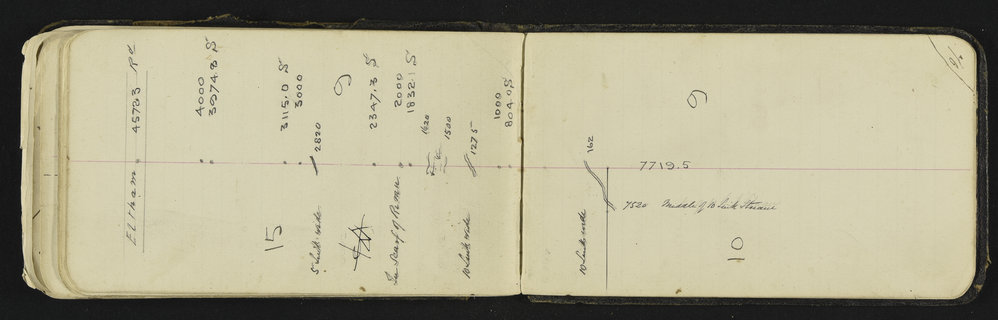 Eltham 4573.3 Rd
4000
3974.8 S
15
3115.0 S
3000
5 Links wide
2820
9
2347.3 S
2000
1832.1 S
1620
1500
10 Links wide
1275
1000
804.0 S
10 Links wide
162
7719.5
7520 Middle of 10 Link Stream
9
10